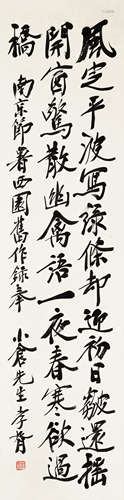 風定平波寫綠條却迎初日皺還搖
開窗驚散幽禽語一夜春寒欲過
橋 南京節署西園舊作錄奉 小倉先生 孝胥